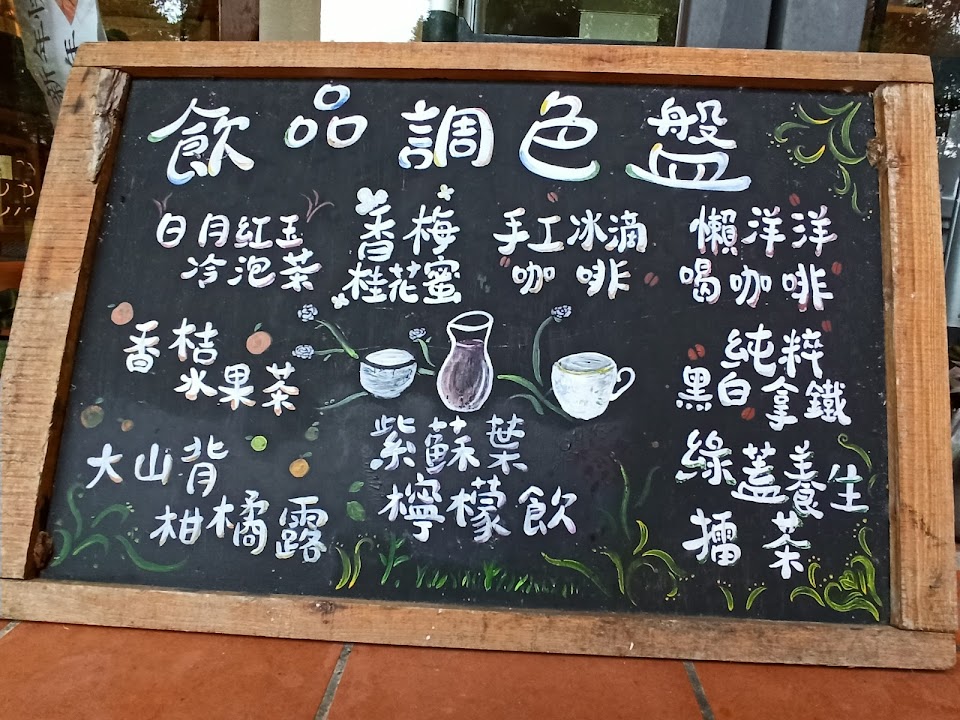 飲品調色盤
日月紅玉
冷泡茶
香梅
桂花蜜
手工冰滴
咖啡
懶洋洋
喝咖啡
香桔
水果茶
純粹
黑白拿鐵
大山背
柑橘露
紫蘇葉
檸檬飲
綠蓋養生
擂茶